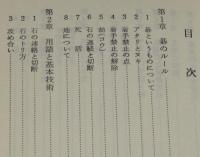 目次
第1章 碁のルール
1 碁というものについて
2 アタリとヌキ
3 着手禁止の点
4 着手禁止の解除
5 劫(コウ)
6 石の連絡と切断
7 死活
8 地について
第2章 用語と基本技術
1 石の連絡と切断
2 石のトリ方
3 攻め合い